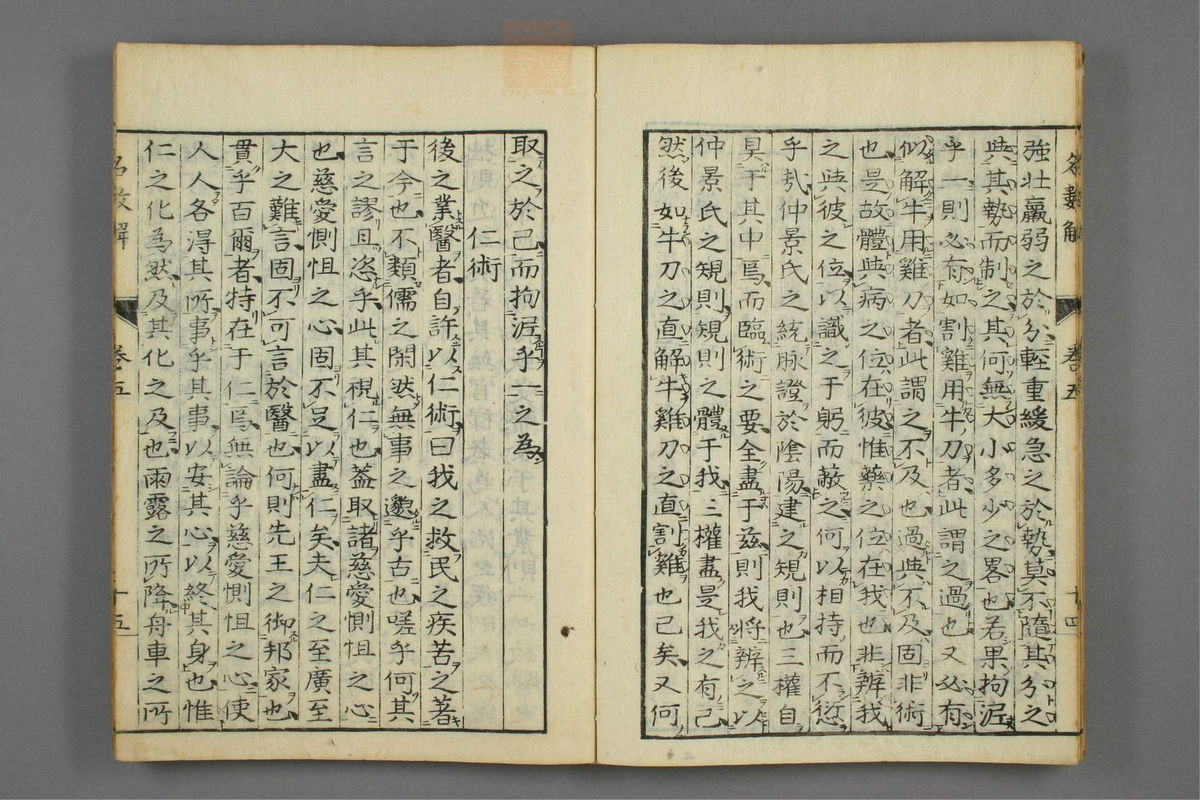 強壯羸弱之於分輕重緩急之於勢莫不隨其分之
與其勢而制之其何無大小多少之畧也若果拘泥
乎一則必有如割雞用牛刀者此謂之過也又必有
似解牛用雞刀者此謂之不及也過與不及固非術
也是故體與病之位在彼惟藥之位在我也非辨我
之與彼之位以識之于躬而蔽之何以相持而不愆
乎哉仲景氏之統脉證於陰陽建之規則也三權自
具于其中焉而臨術之要全盡于茲則我將辨之以
仲景氏之規則規則之體于我三權盡是我之有己
然後如牛刀之直解牛雞刀之直割雞也己矣又何
卷五
十四
取之於己而拘泥乎一之為
仁術
後之業醫者自許以仁術曰我之救民之疾苦之著
于今也不類儒之閑然無事之邈乎古也嗟乎何其
言之謬且恣乎此其視仁也蓋取諸慈愛惻怛之心
也慈愛惻怛之心固不足以盡仁矣夫仁之至廣至
大之難言固不可言於醫也何則先王之御邦家也
貫乎百爾者特在于仁焉無論乎慈愛惻怛之心使
人人各得其所事乎其事以安其心以終其身也惟
仁之化為然及其化之及也雨露之所降舟車之所
卷五
十五